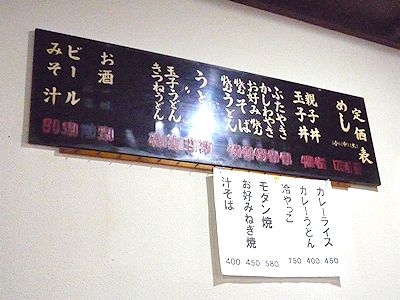 定価表
めし
親子丼
玉子丼
ぶたやき
かしわやき
お好み焼
焼そば
焼うどん
うどん
玉子うどん
きつねうどん
お酒
ビール
みそ汁
カレーライス 450
カレーうどん 400
冷やっこ 150
モダン焼 580
お好みねぎ焼 450
汁そば 400